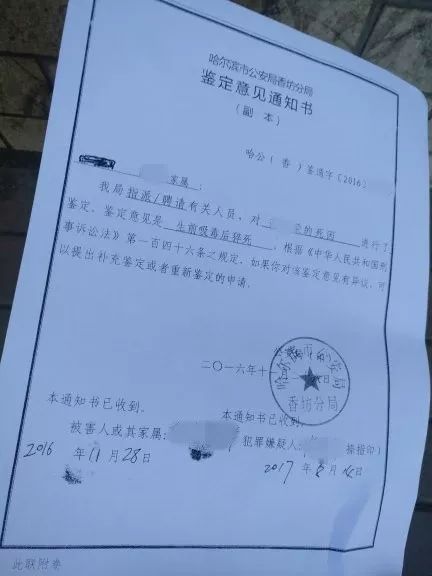 哈尔滨市公安局香坊分局
鉴定意见通知书
(副本)
哈公(香)鉴通字〔2016〕
家属:
我局指派/聘请有关人员,对 的死因 进行了
鉴定。鉴定意见是 生前吸毒后猝死 。根据《中华人民共和国刑
事诉讼法》第一百四十六条之规定,如果你对该鉴定意见有异议,可
以提出补充鉴定或者重新鉴定的申请。
哈尔滨市公安局
香坊分局
二〇一六年十
本通知书已收到。
本通知书已收到。
被害人或其家属:
犯罪嫌疑人: 捺指印)
2016年11月28日
2017年 月 日
此联附卷